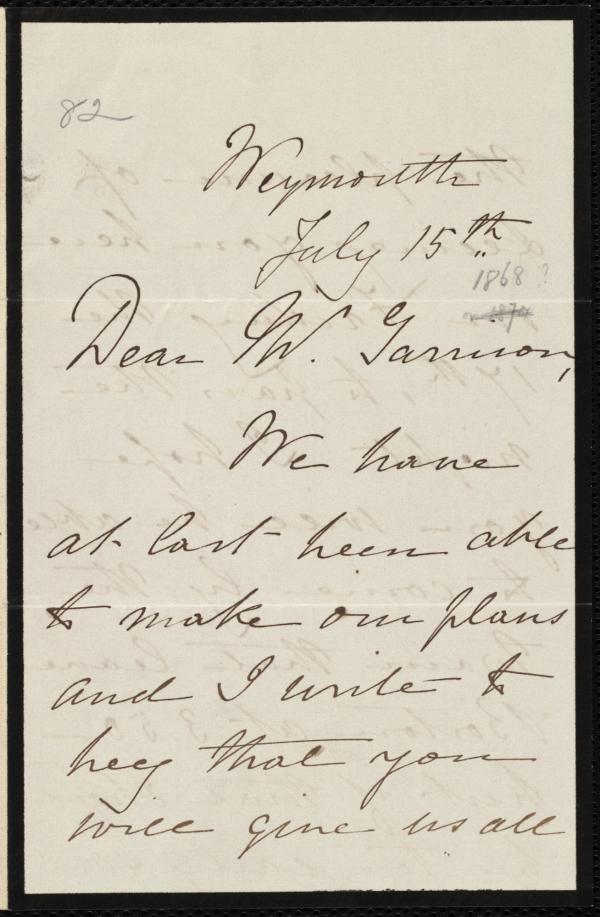 82
Weymouth
July 15th
1868?
or 1874
Dear Mr. Garrison,
We have
at last been able
to make our plans
and I write to
beg that you
will give us all